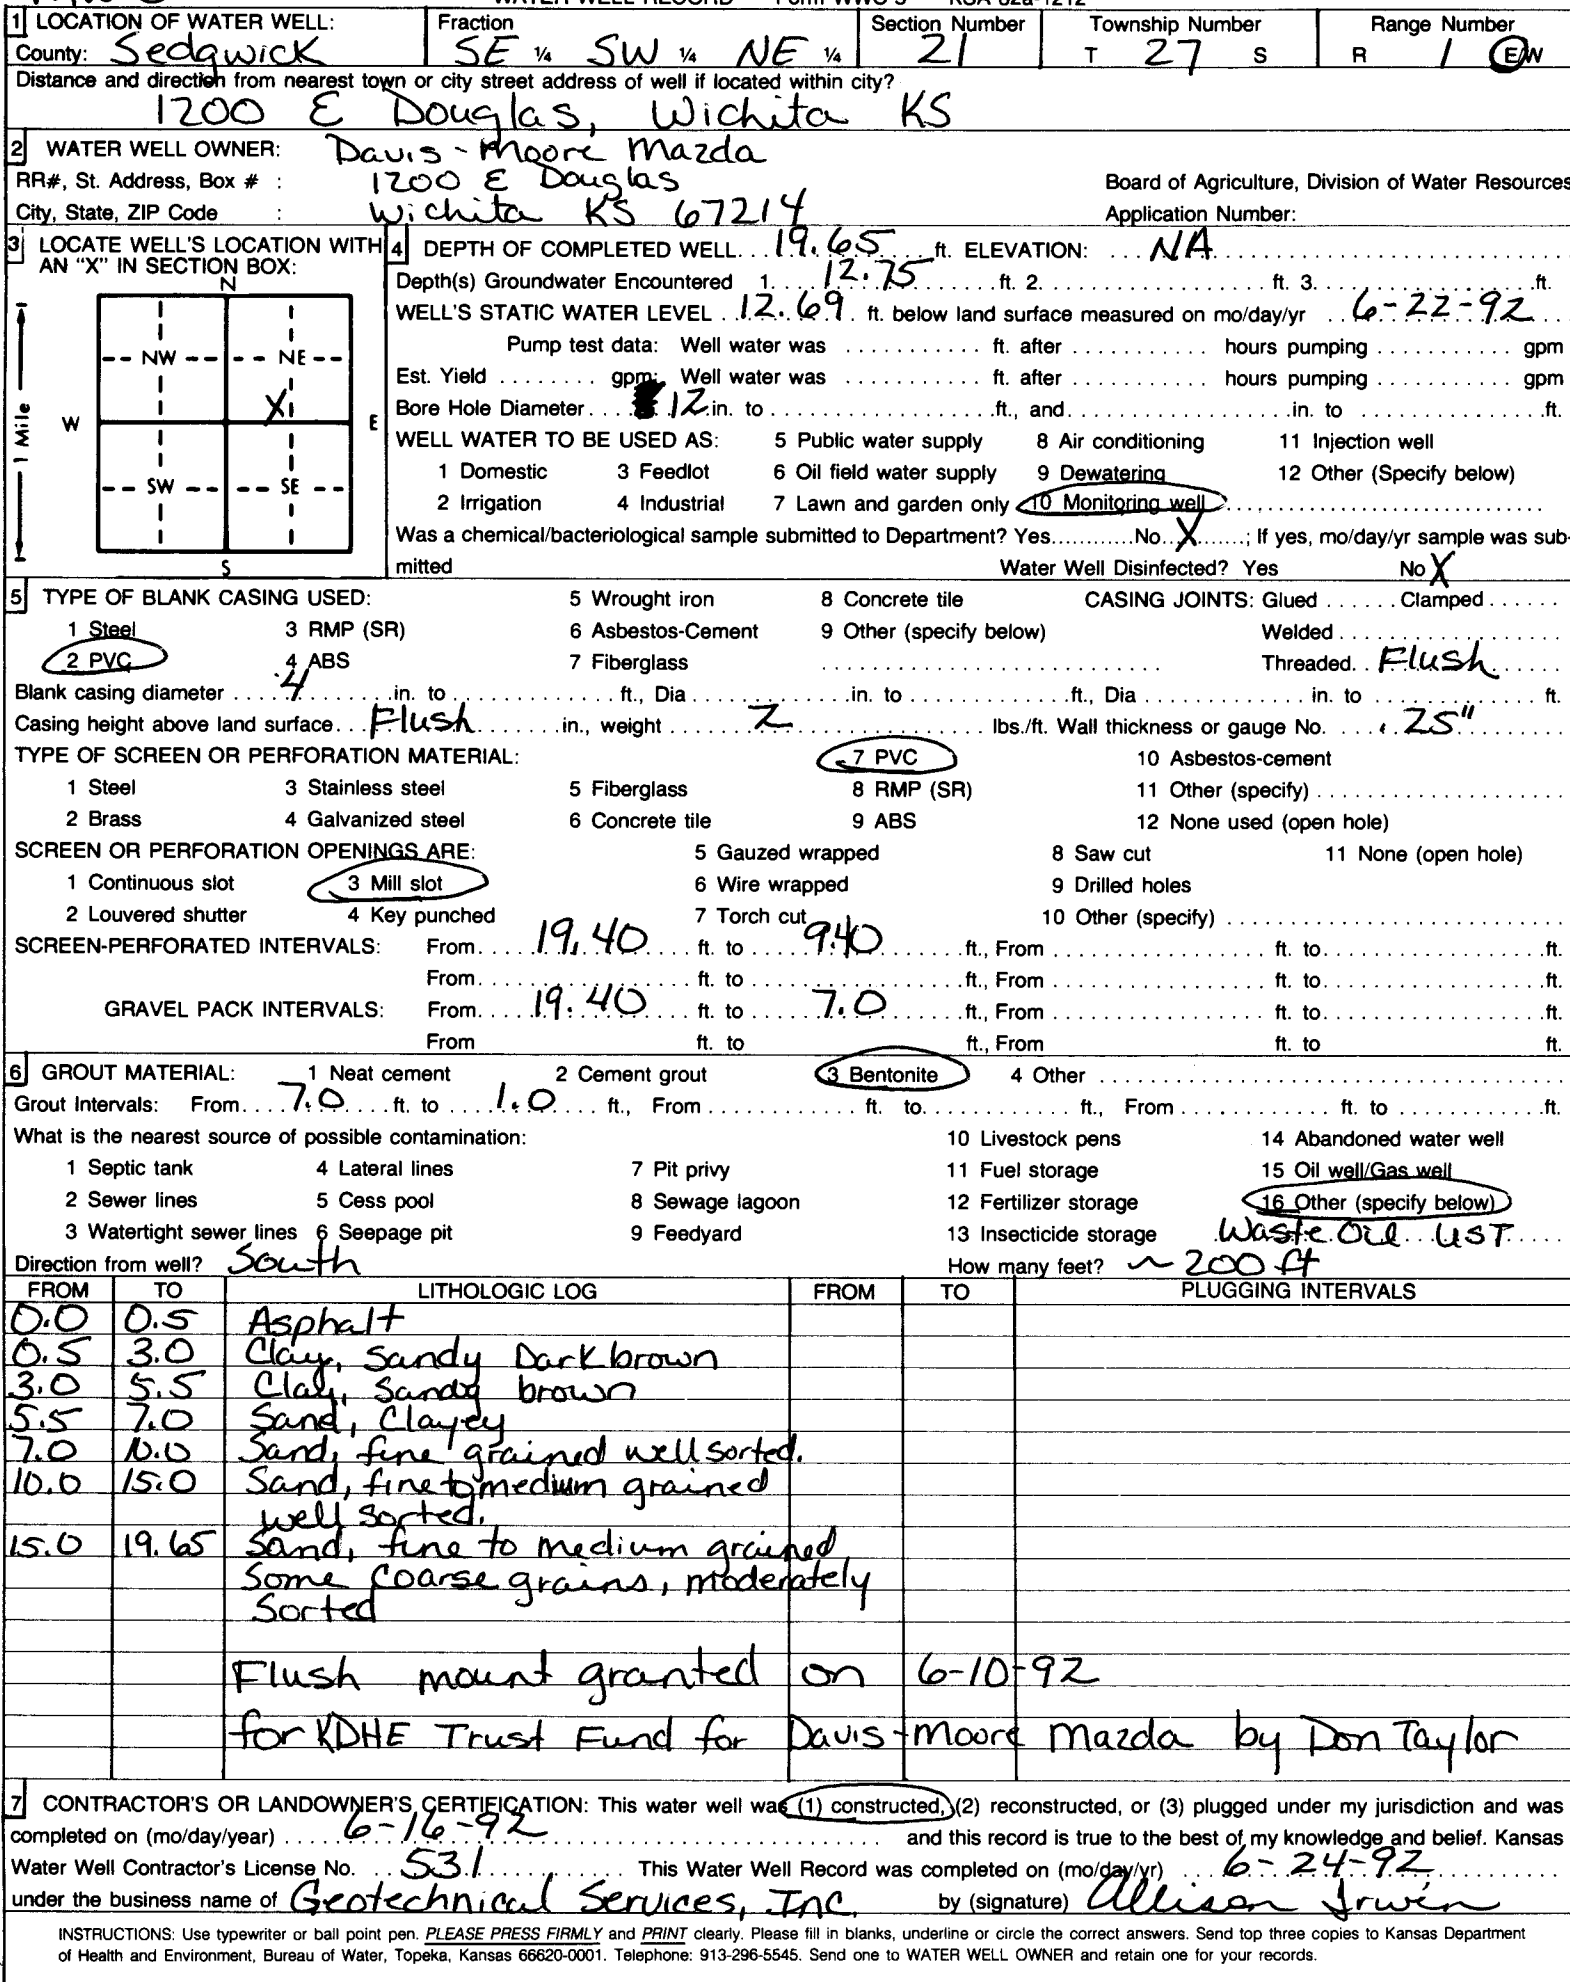 WATER WELL RECORD Form WWC-5 KSA 82a-1212
1 LOCATION OF WATER WELL: Fraction Section Number Township Number Range Number
County: Sedgwick SE ¼ SW ¼ NE ¼ 21 T 27 S R 1 E/W
Distance and direction from nearest town or city street address of well if located within city?
1200 E Douglas, Wichita KS
2 WATER WELL OWNER: Davis-Moore Mazda
RR#, St. Address, Box # : 1200 E Douglas Board of Agriculture, Division of Water Resources
City, State, ZIP Code : Wichita KS 67214 Application Number:
3 LOCATE WELL'S LOCATION WITH AN "X" IN SECTION BOX:
N
NW NE
X
W E
SW SE
S
1 Mile
4 DEPTH OF COMPLETED WELL... 19.65 ...ft. ELEVATION: ... NA
Depth(s) Groundwater Encountered 1. 12.75 ft. 2. ft. 3. ft.
WELL'S STATIC WATER LEVEL .. 12.69 . ft. below land surface measured on mo/day/yr .. 6-22-92
Pump test data: Well water was ........... ft. after ........... hours pumping ........... gpm
Est. Yield ........ gpm: Well water was ........... ft. after ........... hours pumping ........... gpm
Bore Hole Diameter.... 12 in. to ........ft., and........in. to ........ft.
WELL WATER TO BE USED AS: 5 Public water supply 8 Air conditioning 11 Injection well
1 Domestic 3 Feedlot 6 Oil field water supply 9 Dewatering 12 Other (Specify below)
2 Irrigation 4 Industrial 7 Lawn and garden only 10 Monitoring well
Was a chemical/bacteriological sample submitted to Department? Yes...........No...X......; If yes, mo/day/yr sample was sub-
mitted Water Well Disinfected? Yes No X
5 TYPE OF BLANK CASING USED: 5 Wrought iron 8 Concrete tile CASING JOINTS: Glued ...... Clamped ......
1 Steel 3 RMP (SR) 6 Asbestos-Cement 9 Other (specify below) Welded
2 PVC 4 ABS 7 Fiberglass Threaded.. Flush
Blank casing diameter ..... 4 .....in. to ........ft., Dia ........in. to ........ft., Dia ........ in. to ........ ft.
Casing height above land surface... Flush .....in., weight ..... 2 ..... lbs./ft. Wall thickness or gauge No. .... .25"
TYPE OF SCREEN OR PERFORATION MATERIAL: 7 PVC 10 Asbestos-cement
1 Steel 3 Stainless steel 5 Fiberglass 8 RMP (SR) 11 Other (specify)
2 Brass 4 Galvanized steel 6 Concrete tile 9 ABS 12 None used (open hole)
SCREEN OR PERFORATION OPENINGS ARE: 5 Gauzed wrapped 8 Saw cut 11 None (open hole)
1 Continuous slot 3 Mill slot 6 Wire wrapped 9 Drilled holes
2 Louvered shutter 4 Key punched 7 Torch cut 10 Other (specify)
SCREEN-PERFORATED INTERVALS: From 19.40 ft. to 9.40 ft., From ft. to ft.
From ft. to ft., From ft. to ft.
GRAVEL PACK INTERVALS: From 19.40 ft. to 7.0 ft., From ft. to ft.
From ft. to ft., From ft. to ft.
6 GROUT MATERIAL: 1 Neat cement 2 Cement grout 3 Bentonite 4 Other
Grout Intervals: From 7.0 ft. to 1.0 ft., From ft. to ft., From ft. to ft.
What is the nearest source of possible contamination: 10 Livestock pens 14 Abandoned water well
1 Septic tank 4 Lateral lines 7 Pit privy 11 Fuel storage 15 Oil well/Gas well
2 Sewer lines 5 Cess pool 8 Sewage lagoon 12 Fertilizer storage 16 Other (specify below)
3 Watertight sewer lines 6 Seepage pit 9 Feedyard 13 Insecticide storage Waste Oil UST
Direction from well? South How many feet? ~ 200 ft
FROM TO LITHOLOGIC LOG FROM TO PLUGGING INTERVALS
0.0 0.5 Asphalt
0.5 3.0 Clay, Sandy Dark brown
3.0 5.5 Clay, Sandy brown
5.5 7.0 Sand, Clayey
7.0 10.0 Sand, fine grained well sorted.
10.0 15.0 Sand, fine to medium grained
well sorted.
15.0 19.65 Sand, fine to medium grained,
Some coarse grains, moderately
Sorted
Flush mount granted on 6-10-92
for KDHE Trust Fund for Davis-Moore Mazda by Don Taylor
7 CONTRACTOR'S OR LANDOWNER'S CERTIFICATION: This water well was (1) constructed, (2) reconstructed, or (3) plugged under my jurisdiction and was
completed on (mo/day/year) ..... 6-16-92 ..... and this record is true to the best of my knowledge and belief. Kansas
Water Well Contractor's License No. .. 531 ..... This Water Well Record was completed on (mo/day/yr) ... 6-24-92
under the business name of Geotechnical Services, Inc. by (signature) Allison Irwin
INSTRUCTIONS: Use typewriter or ball point pen. PLEASE PRESS FIRMLY and PRINT clearly. Please fill in blanks, underline or circle the correct answers. Send top three copies to Kansas Department
of Health and Environment, Bureau of Water, Topeka, Kansas 66620-0001. Telephone: 913-296-5545. Send one to WATER WELL OWNER and retain one for your records.